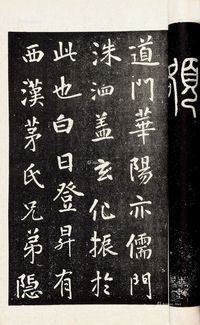 道門華陽亦儒門
洙泗盖玄化振於
此也白日登昇有
西漢茅氏兄弟隐